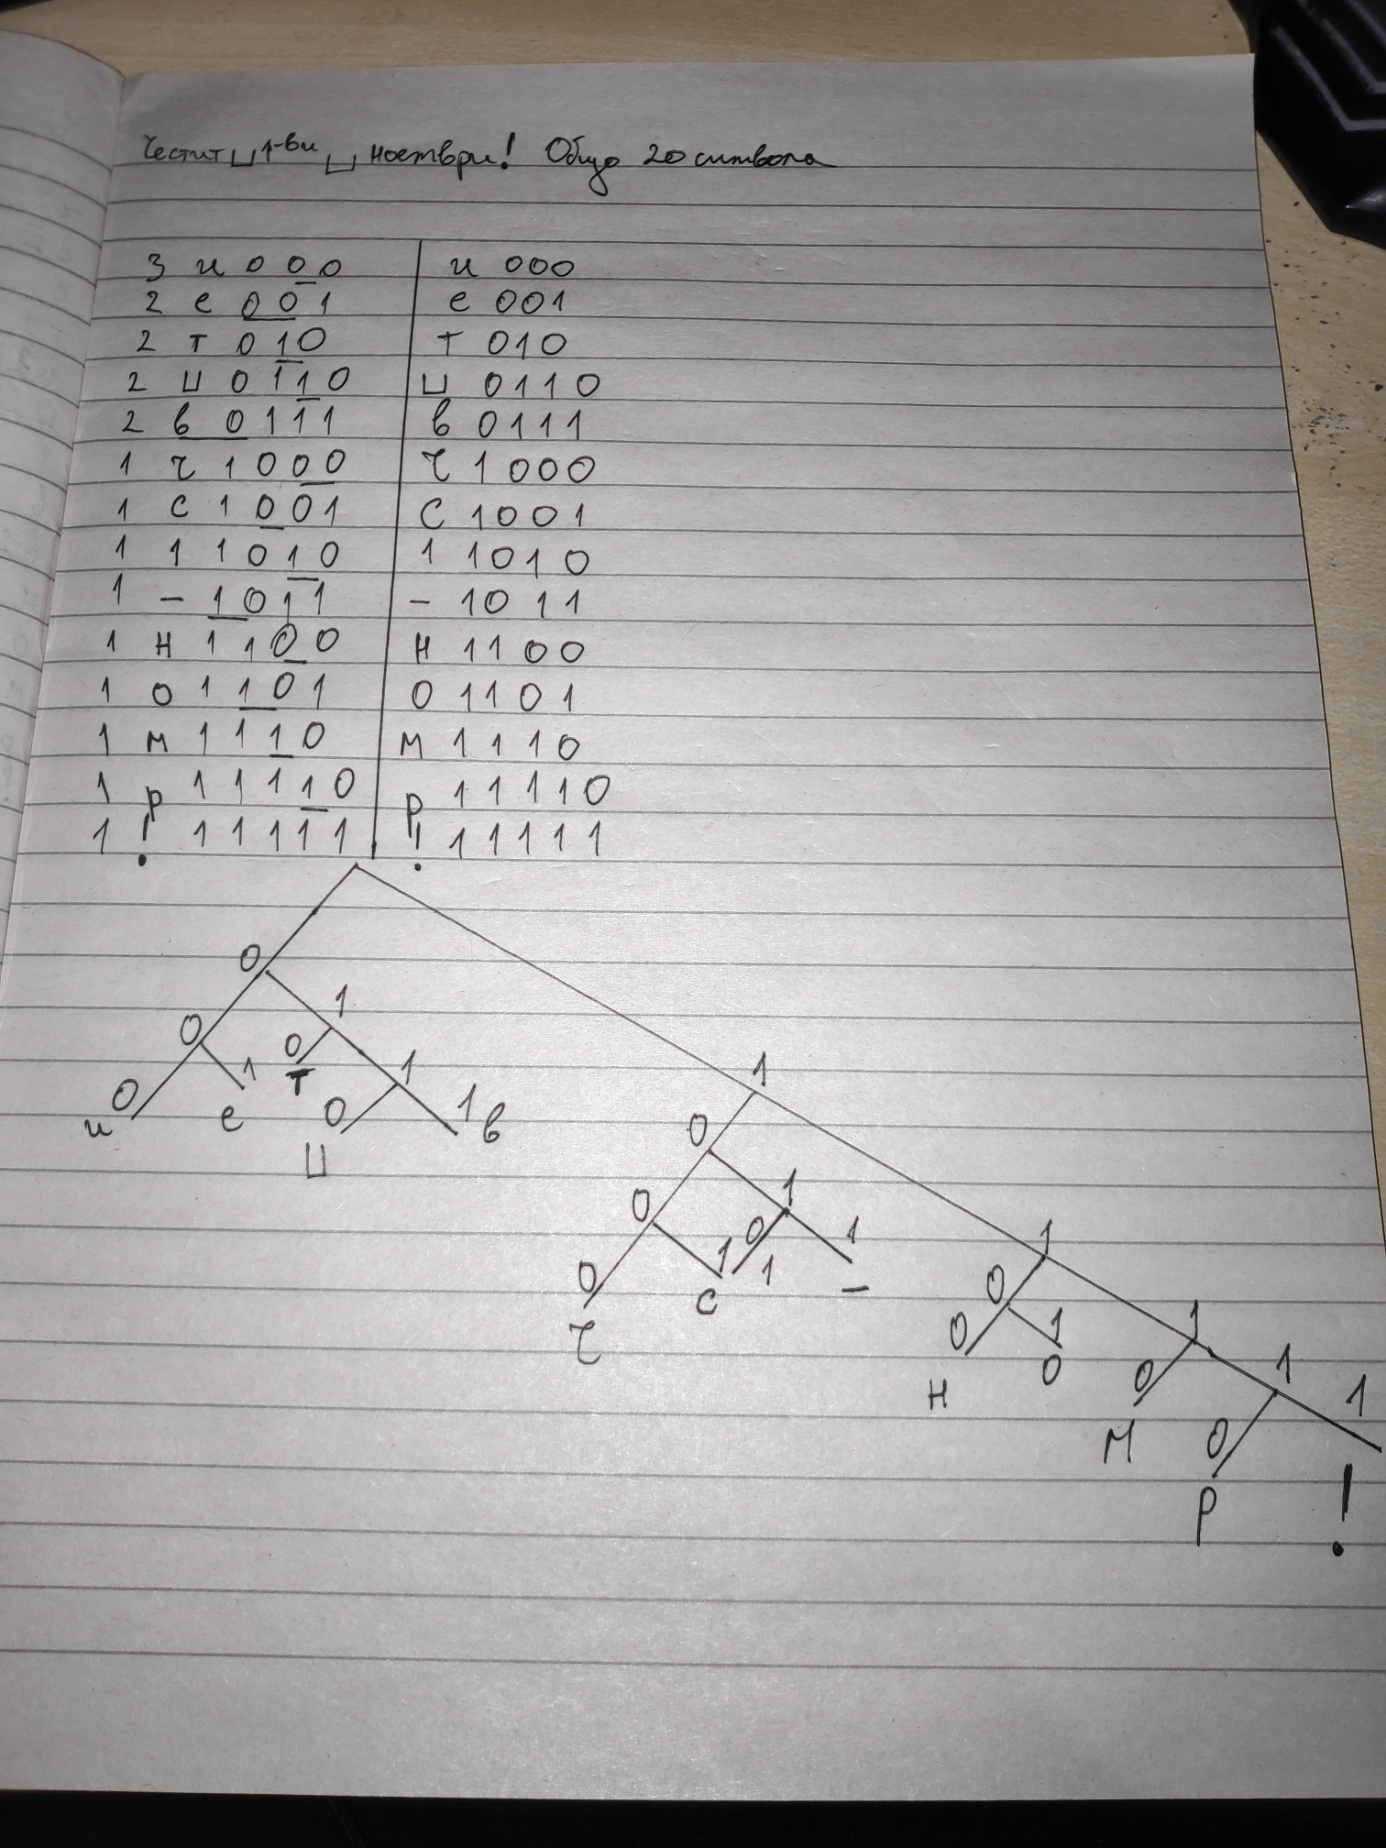 Честит␣1-ви␣ноември! Общо 20 символа
3 и 000 и 000
2 е 001 е 001
2 т 010 т 010
2 ␣ 0110 ␣ 0110
2 в 0111 в 0111
1 ч 1000 ч 1000
1 с 1001 с 1001
1 1 1010 1 1010
1 - 1011 - 1011
1 н 1100 н 1100
1 о 1101 о 1101
1 м 1110 м 1110
1 р 11110 р 11110
1 ! 11111 ! 11111
0
0 1
0 1 0 1
и е т 0 1 в
␣
1
0 1
0 1
0 1 0 1
ч с 1 -
0 1
0 1 0 1
н о м 0 1
р !